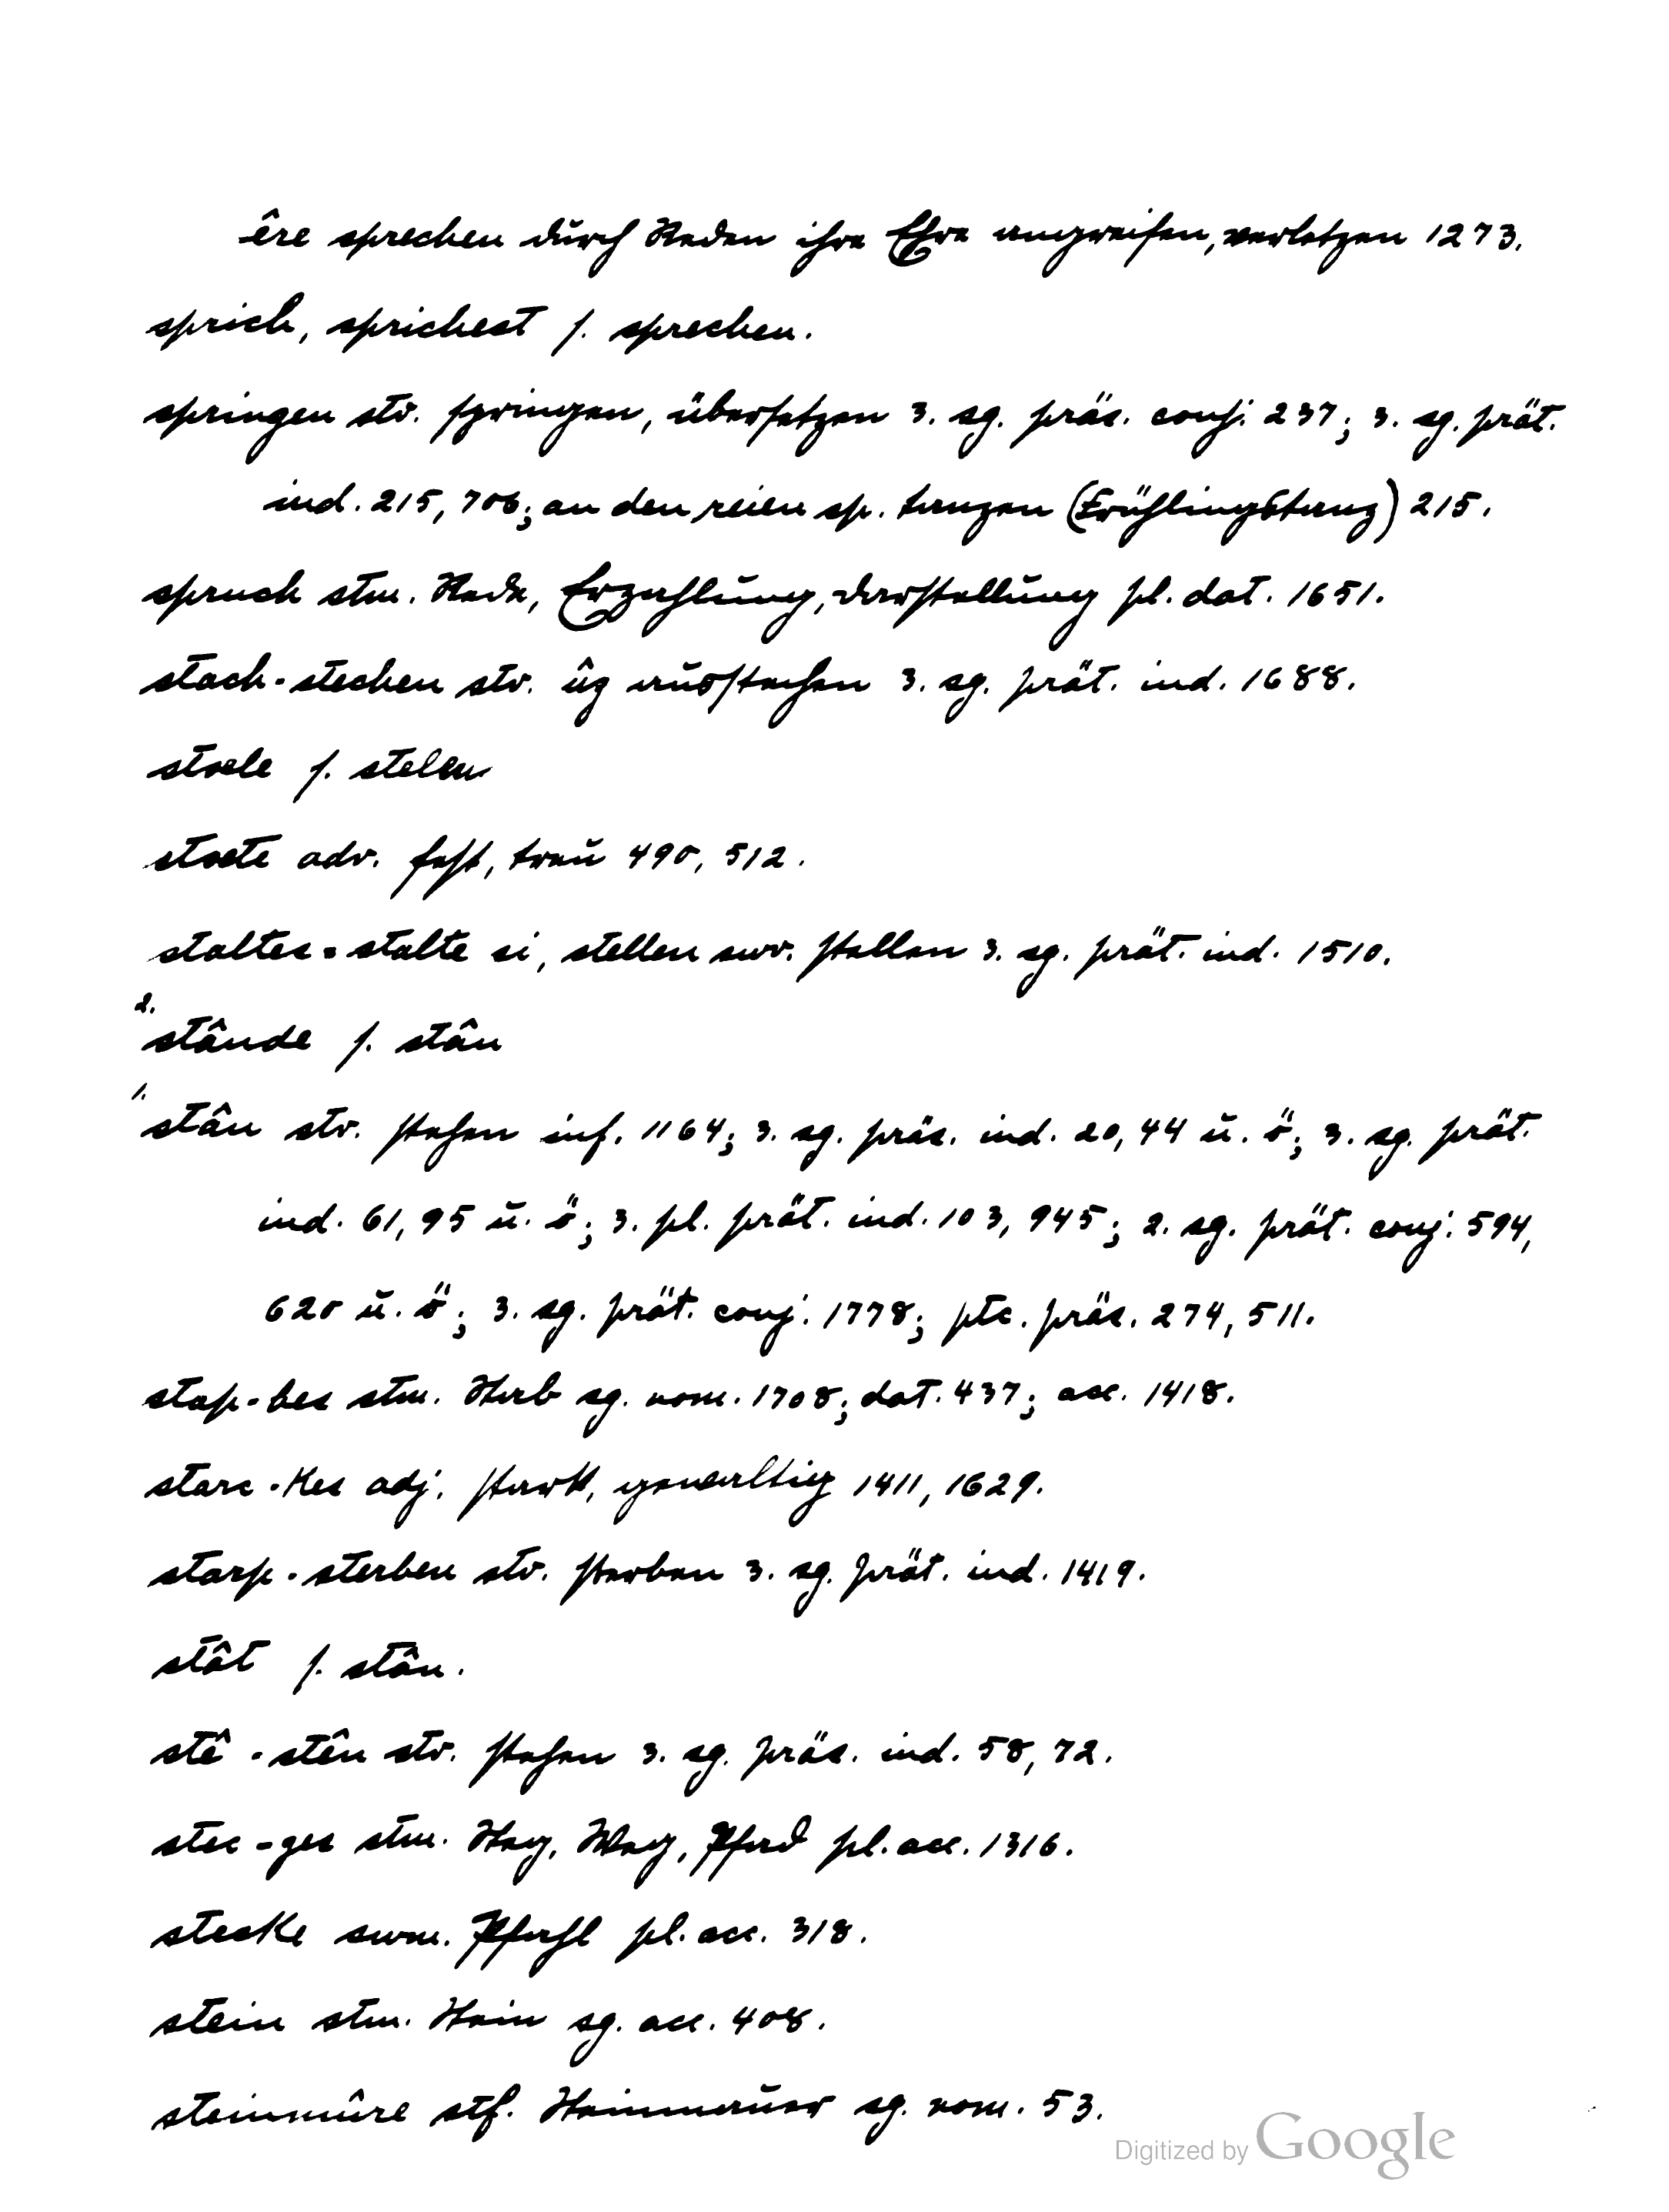 êre sprechen durch Reden ihre Ehre angreifen, verletzen 1273.
sprich, sprichest s. sprechen.
springen stv. springen, übersetzen 3. sg. präs. conj. 237; 3. sg. prät.
ind. 215, 706; an den reien sp. tanzen (Frühlingstanz) 215.
spruch stm. Rede, Erzahlung, darstellung pl. dat. 1651.
stach - stechen stv. ûz ausstechen 3. sg. prät. ind. 1688.
staele s. stelen
staete adv. fest, treu 490, 512.
staltes = stalte si, stellen swv. stellen 3. sg. prät. ind. 1510.
2.
stânde s. stân
1.
stân stv. stehen inf. 1164; 3. sg. präs. ind. 20, 44 u. ö; 3. sg. prät.
ind. 61, 95 u. ö; 3. pl. prät. ind. 103, 945; 2. sg. prät. conj. 594,
620 u. ö; 3. sg. prät. conj. 1778; ptc. präs. 274, 511.
stap - bes stm. Stab sg. nom. 1708; dat. 437; acc. 1418.
starc - kes adj. stark, gewaltig 1411, 1629.
starp - sterben stv. sterben 3. sg. prät. ind. 1419.
stât s. stân.
stê - stên stv. stehen 3. sg. präs. ind. 58, 72.
stec - ges stm. Steg, Weg, Pfad pl. acc. 1316.
stecke swm. Pfahl pl. acc. 318.
stein stm. Stein sg. acc. 408.
steinmûre stf. Steinmauer sg. nom. 53.
Digitized by Google